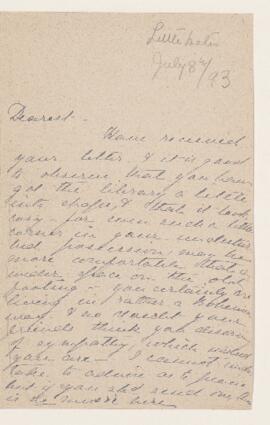 July 8th/93
Dearest -
Have received
your letter & it is good
to observe that you have
got the library a little
into shape, & that it looks
cosy - for even such a little
corner in your undisturbed
possession may be
more comfortable than a
wider space on the old
footing - you certainly are
living in rather a
way. & no doubt your
friends think you deserving
of sympathy, which indeed
you are - I cannot under
take to advise as to
but if you shd send me
is no more here